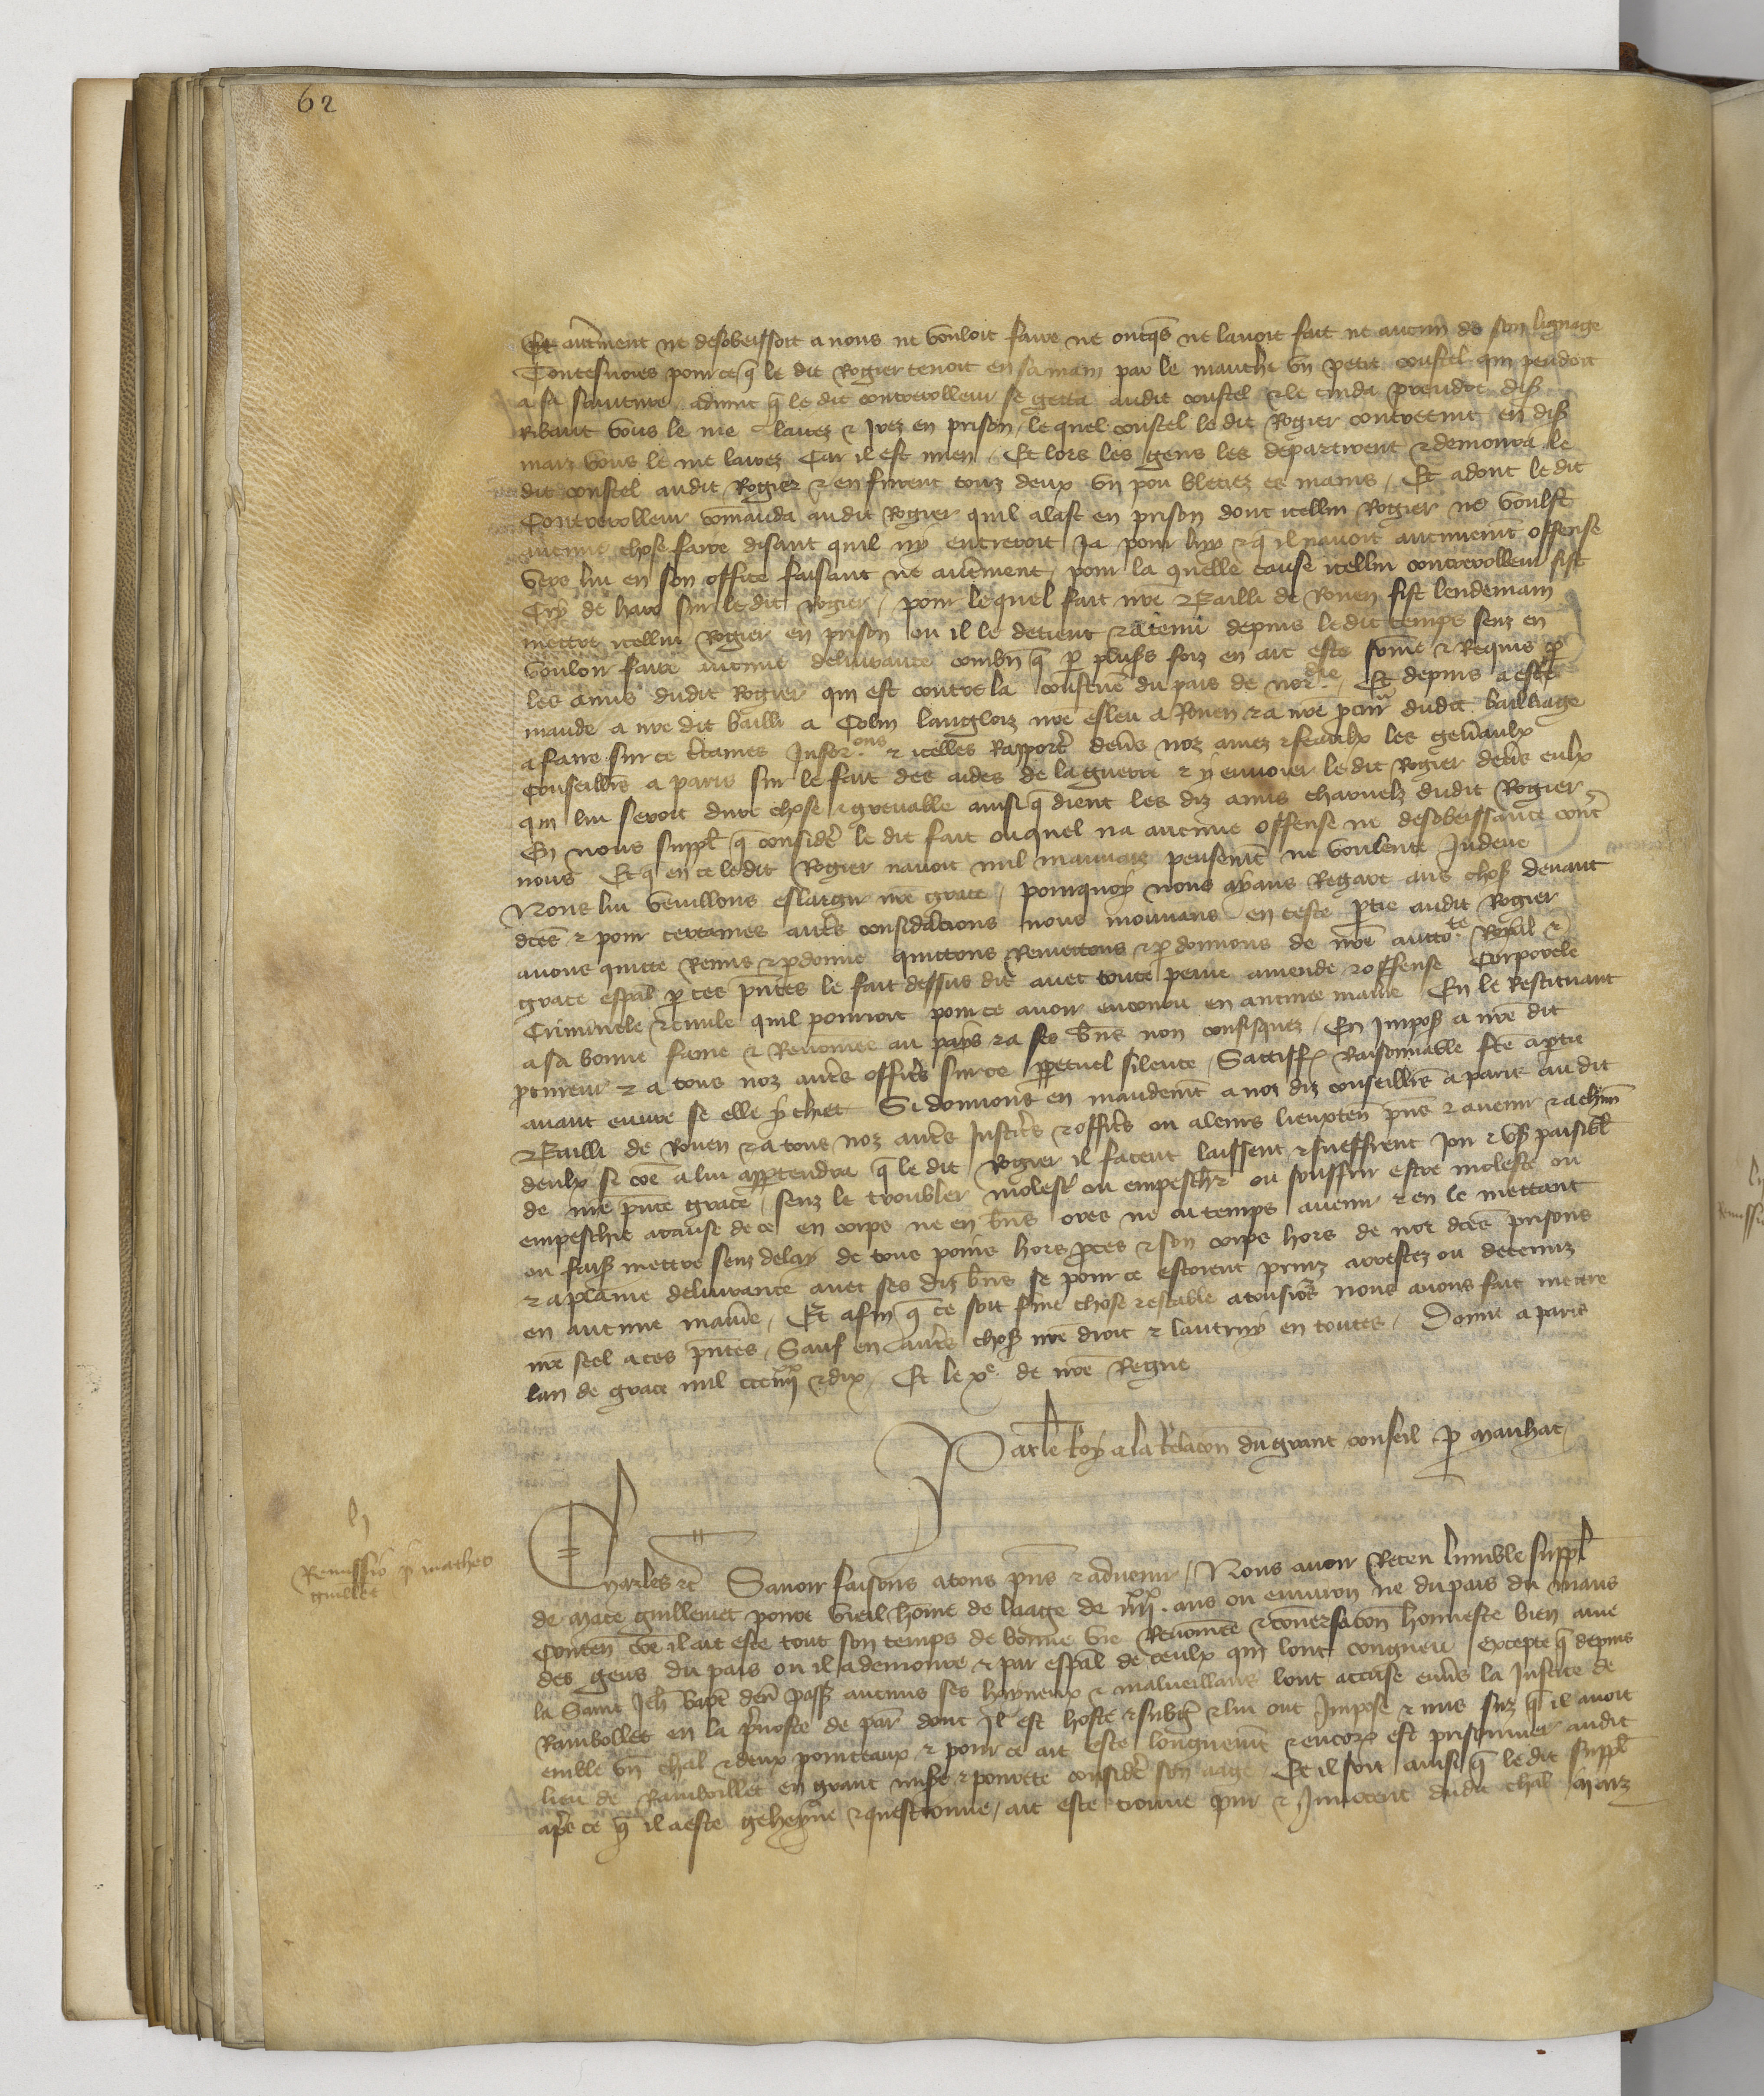 62
Et autrement ne desobeissoit a nous ne vouloit faire ne oncqs ne lavoit fait ne aucun de son lignage
Toutesvoies pour ce q̃ le dit Rogier tenoit en sa main par le manche un petit coustel qui pendoit
a sa sainture advint q̃ le dit contrerolleur se getta audit coustel & le cuida prendre dis
Ribaut vous le me lairez & irez en prison / le quel coustel le dit Rogier contretint en dis
mais vous le me lairez Car il est mien / Et lors les gens les departirent & demoura le
dit coustel audit Rogier & en furent touz deux un pou bleciez es mains / Et adont le dit
Contrerolleur cōmanda audit Rogier quil alast en prison dont icellui Rogier ne voulst
aucune chose faire disant quil ny entreroit ja pour luy & q̃ il navoit aucunemt offense
vers lui en son office faisant ne autrement / pour la quelle cause icellui contrerolleur fist
Cry de haro sur le dit Rogier / pour lequel fait nr̃e Bailli de Rouen fist lendemain
mettre icellui Rogier en prison ou il le detient & a tenu depuis le dit temps senz en
vouloir faire aucune delivrance combn̄ q̃ p plus̃s foiz en ait este sōme & Requis p
les amis dudit Rogier qui est contre la coustume du pais de nor die / Et depuis a este
mande a nr̃e dit bailli a Colin langloiz nr̃e esleu a Rouen & a nr̃e pcur̃ dudit bailliage
a faire sur ce c̃taines Infor ons & icelles Rapport̃ deṽs noz amez & feaulx les gen̄aulx
Conseill̃rs a paris sur le fait des aides de la guerre & y envoier le dit Rogier deṽs eulx
qui lui seroit dure chose & grevable ainsi q̃ dient les diz amis charnelz dudit Rogier
En nous suppl̃ q̃ consider̃ le dit fait ouquel na aucune offense ne desobeissance cont̃
nous Et q̃ en ce ledit Rogier navoit nul mauvaiz pensemt̃ ne voulente Indeue
Nous lui vueillons eslargir nr̃e grace / pourquoy nous ayans Regart aus chos̃ devant
dc̃es & pour certaines aut̃s considerac̃ions nous mouvans en ceste ptie audit Rogier
avons quitte Remis & pdonne quittons Remettons & pdonnons de nr̃e aucto te Royal &
grace esp̃al p ces pn̄tes le fait dessus dit avec toute peine amende & offense Corporele
Criminele & civile quil pourroit pour ce avoir encouru en aucune manie En le Restituant
a sa bonne fame & Renomee au pays & a ses bn̄s non confisquez / En Impos̃ a nr̃e dit
pcureur & a tous noz aut̃s offic̃s sur ce ppetuel silence / Sattiff̃ Raisonnable fc̃e a ptie
avant euvre se elle y chiet Si donnons en mandemt̃ a noz diz conseill̃rs a paris au dit
Bailli de Rouen & a tous noz aut̃s Justic̃s & offic̃s ou a leurs lieuxten̄ pn̄s & avenir & a chūn
deulx si cōe a lui apptendra q̃ le dit Rogier il facent laissent & sueffrent joir & us̃ paisibl̃
de nr̃e pn̄te grace / senz le troubler molest̃ ou empesch̃r ou souffrir estre moleste ou
empeschie a cause de ce en corps ne en bn̄s ores ne ou temps avenir & en le mettant
ou fais̃ mettre senz delay de tous poins hors pces & son corps hors de noz dc̃es prisons
& a plaine delivrance avec ses diz bn̄s se pour ce estoient prinz arrestez ou detenuz
en aucune manie / Et afin q̃ ce soit ferme chose & estable a tousio̓s nous avons fait mettre
nr̃e seel a ces pn̄tes / Sauf en aut̃s chos̃ nr̃e droit & lautruy en toutes / Donne a paris
lan de grace mil ccc iiii xx & dix / Et le xe. de nr̃e Regne
Par le Roy a la Relac̃on du grant conseil p Manhac /
Remissio p̃ matheo
guillet
Charles &c̃ Savoir faisons a tous pn̄s & advenir / Nous avoir Receu lumble suppl̃
de Mace Guillemet povre vieil hōme de laage de iiii xx. ans ou environ ne du pais du Mans
Conten̄ cōe il ait este tout son temps de bonne vie Renōmee & conversac̃on honneste bien ame
des gens du pais ou il a demoure & par esp̃al de ceulx qui lont congneu excepte q̃ depuis
la Saint Jeh̃ bapt̃e den̄ passe aucuns ses hayneux & malveillans lont accuse enṽs la Justice de
Rambollet en la p̃voste de par̃ dont Il est hoste & subg̃ & lui ont Impose & mis suz q̃ il avoit
emble un ch̃al & deux pourceaux & pour ce ait este longuemt̃ & encor̃ est prisonnier audit
lieu de Ramboullet en grant mise & povrete consider̃ son aage Et il soit ainsi q̃ le dit suppl̃
ap̃s ce q̃ il a este geheyne & questionne / ait este trouve pur & Innocent dudit ch̃al Maiz